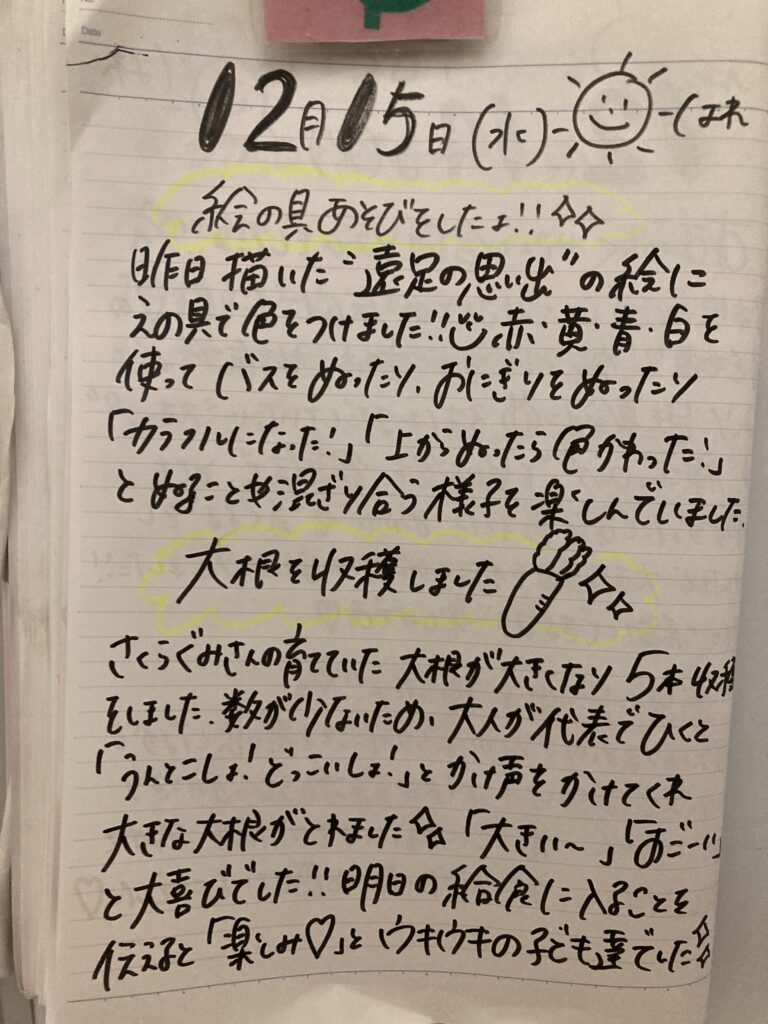 12月15日(水) はれ
絵の具あそびをしたよ!!
昨日描いた"遠足の思い出"の絵に
えの具で色をつけました!!赤・黄・青・白を
使ってバスをぬったり、おにぎりをぬったり
「カラフルになった!」「上からぬったら色かわった!」
とぬることや混ざり合う様子を楽しんでいました。
大根を収穫しました
さくらぐみさんの育てていた大根が大きくなり5本収穫
をしました。数が少ないため、大人が代表でひくと
「うんとこしょ!どっこいしょ!」とかけ声をかけてくれ
大きな大根がとれました「大きい〜」「すご〜い」
と大喜びでした!!明日の給食に入ることを
伝えると「楽しみ♡」とウキウキの子ども達でした
Date